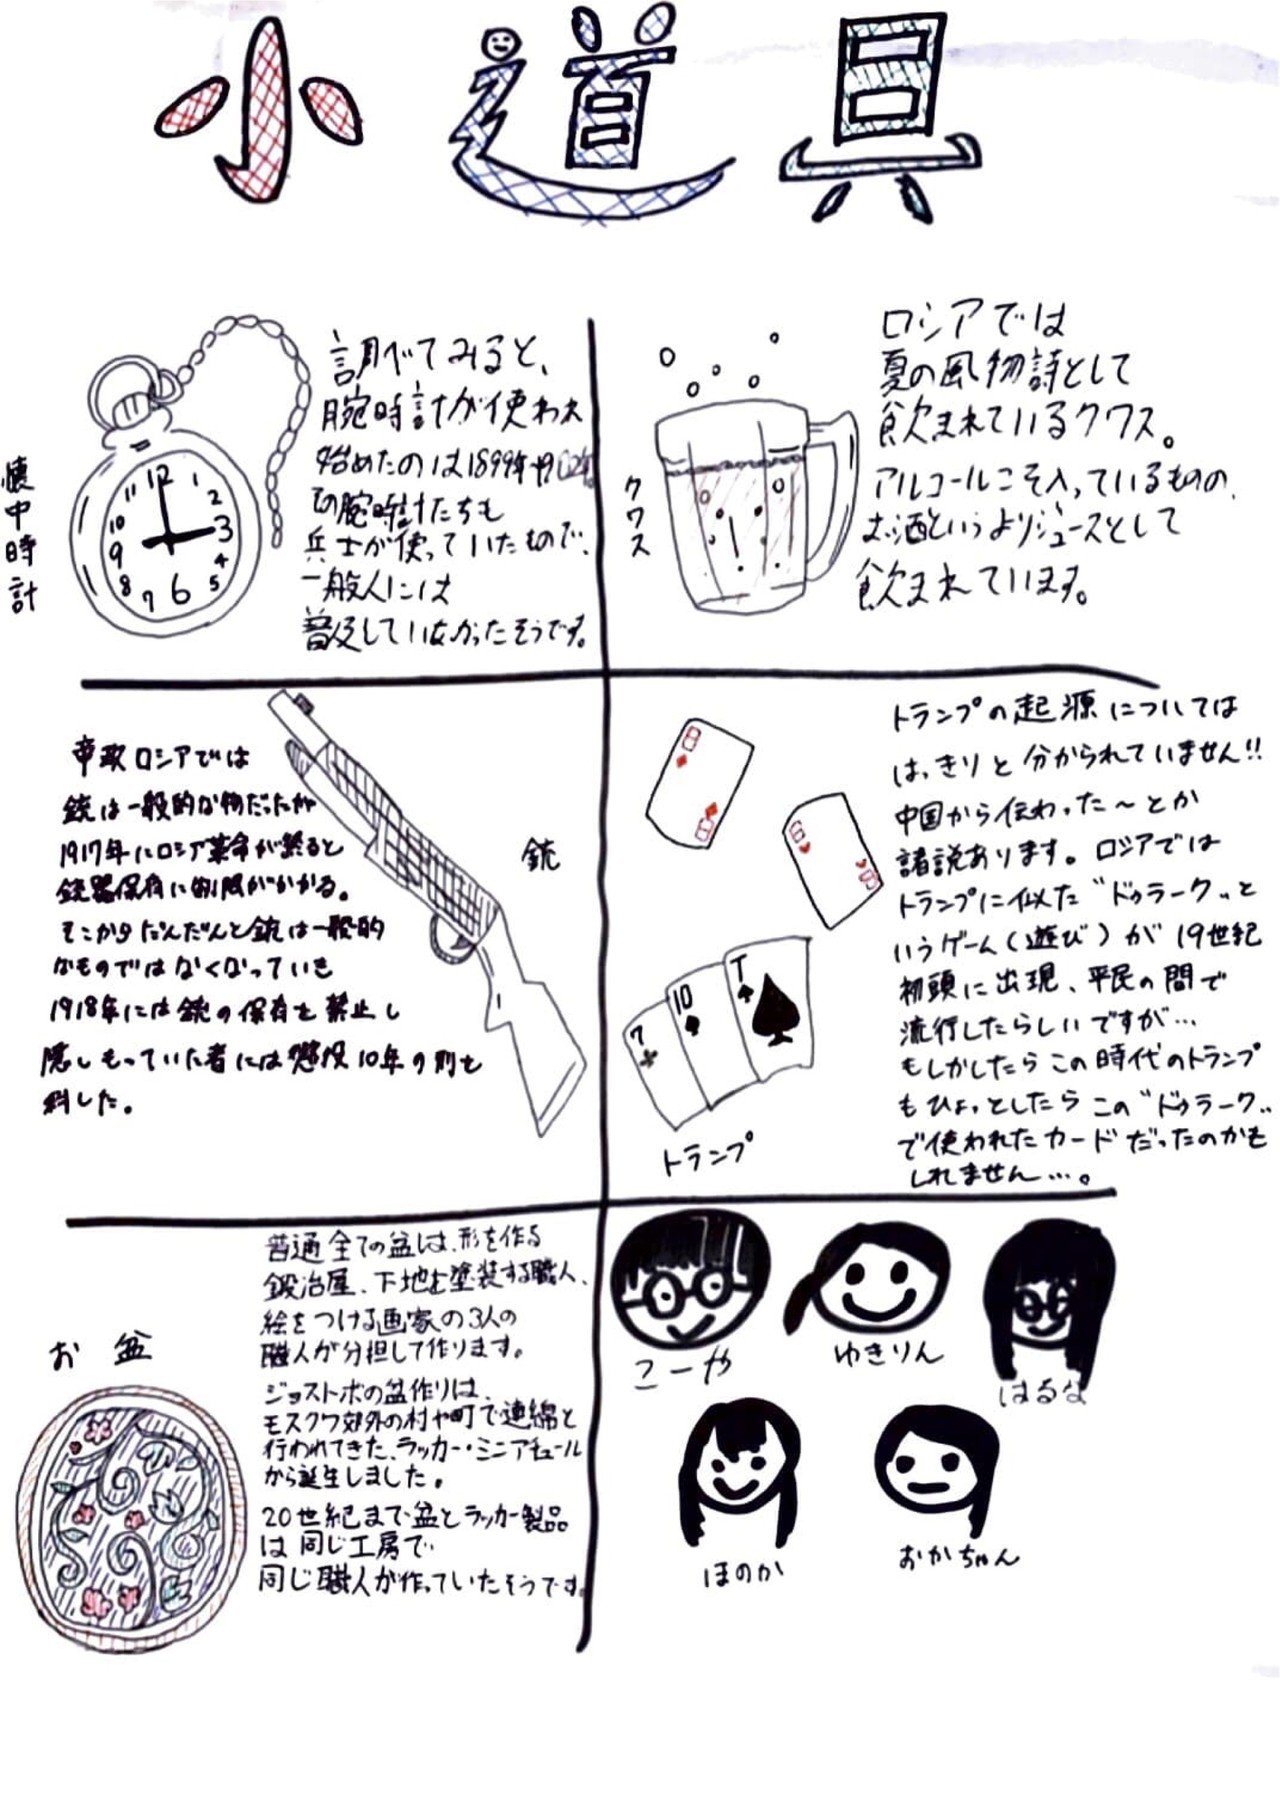 小道具
懐中時計
12
1
2
3
4
5
6
7
8
9
10
11
調べてみると、
腕時計が使われ
始めたのは1899年
の腕時計たちも
兵士が使っていたもので、
一般人には
普及していなかったそうです。
クワス
ロシアでは
夏の風物詩として
飲まれているクワス。
アルコールこそ入っているものの、
お酒というよりジュースとして
飲まれています。
帝政ロシアでは
銃は一般的な物だったが
1917年にロシア革命が終ると
銃器保有に制限がかかる。
そこからだんだんと銃は一般的
なものではなくなっていき
1918年には銃の保有を禁止し
隠しもっていた者には懲役10年の刑を
科した。
銃
8
8
6
6
7
10
T
トランプ
トランプの起源については
はっきりと分かられていません!!
中国から伝わった〜とか
諸説あります。ロシアでは
トランプに似た〝ドゥラーク〟と
いうゲーム(遊び)が19世紀
初頭に出現、平民の間で
流行したらしいですが…
もしかしたらこの時代のトランプ
もひょっとしたらこの〝ドゥラーク〟
で使われたカードだったのかも
しれません…。
お盆
普通全ての盆は、形を作る
鍛冶屋、下地を塗装する職人、
絵をつける画家の3人の
職人が分担して作ります。
ジョストボの盆作りは、
モスクワ郊外の村や町で連綿と
行われてきた、ラッカー・ミニアチュール
から誕生しました。
20世紀まで盆とラッカー製品
は同じ工房で
同じ職人が作っていたそうです。
こーや
ゆきりん
はるな
ほのか
おかちゃん